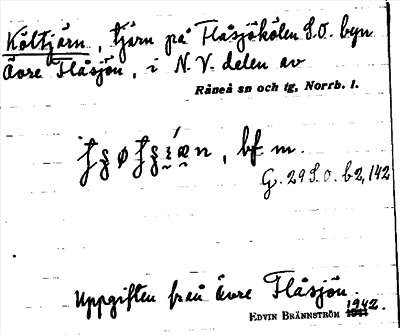 Költjärn, tjärn på Flåsjökölen S.O. byn
Övre Flåsjön, i N.V. delen av
Råneå sn och tg, Norrb. l.
, bf. m.
G. 29 S.O. b2, 142
Uppgiften från övre Flåsjön.
EDVIN BRÄNNSTRÖM 1942.